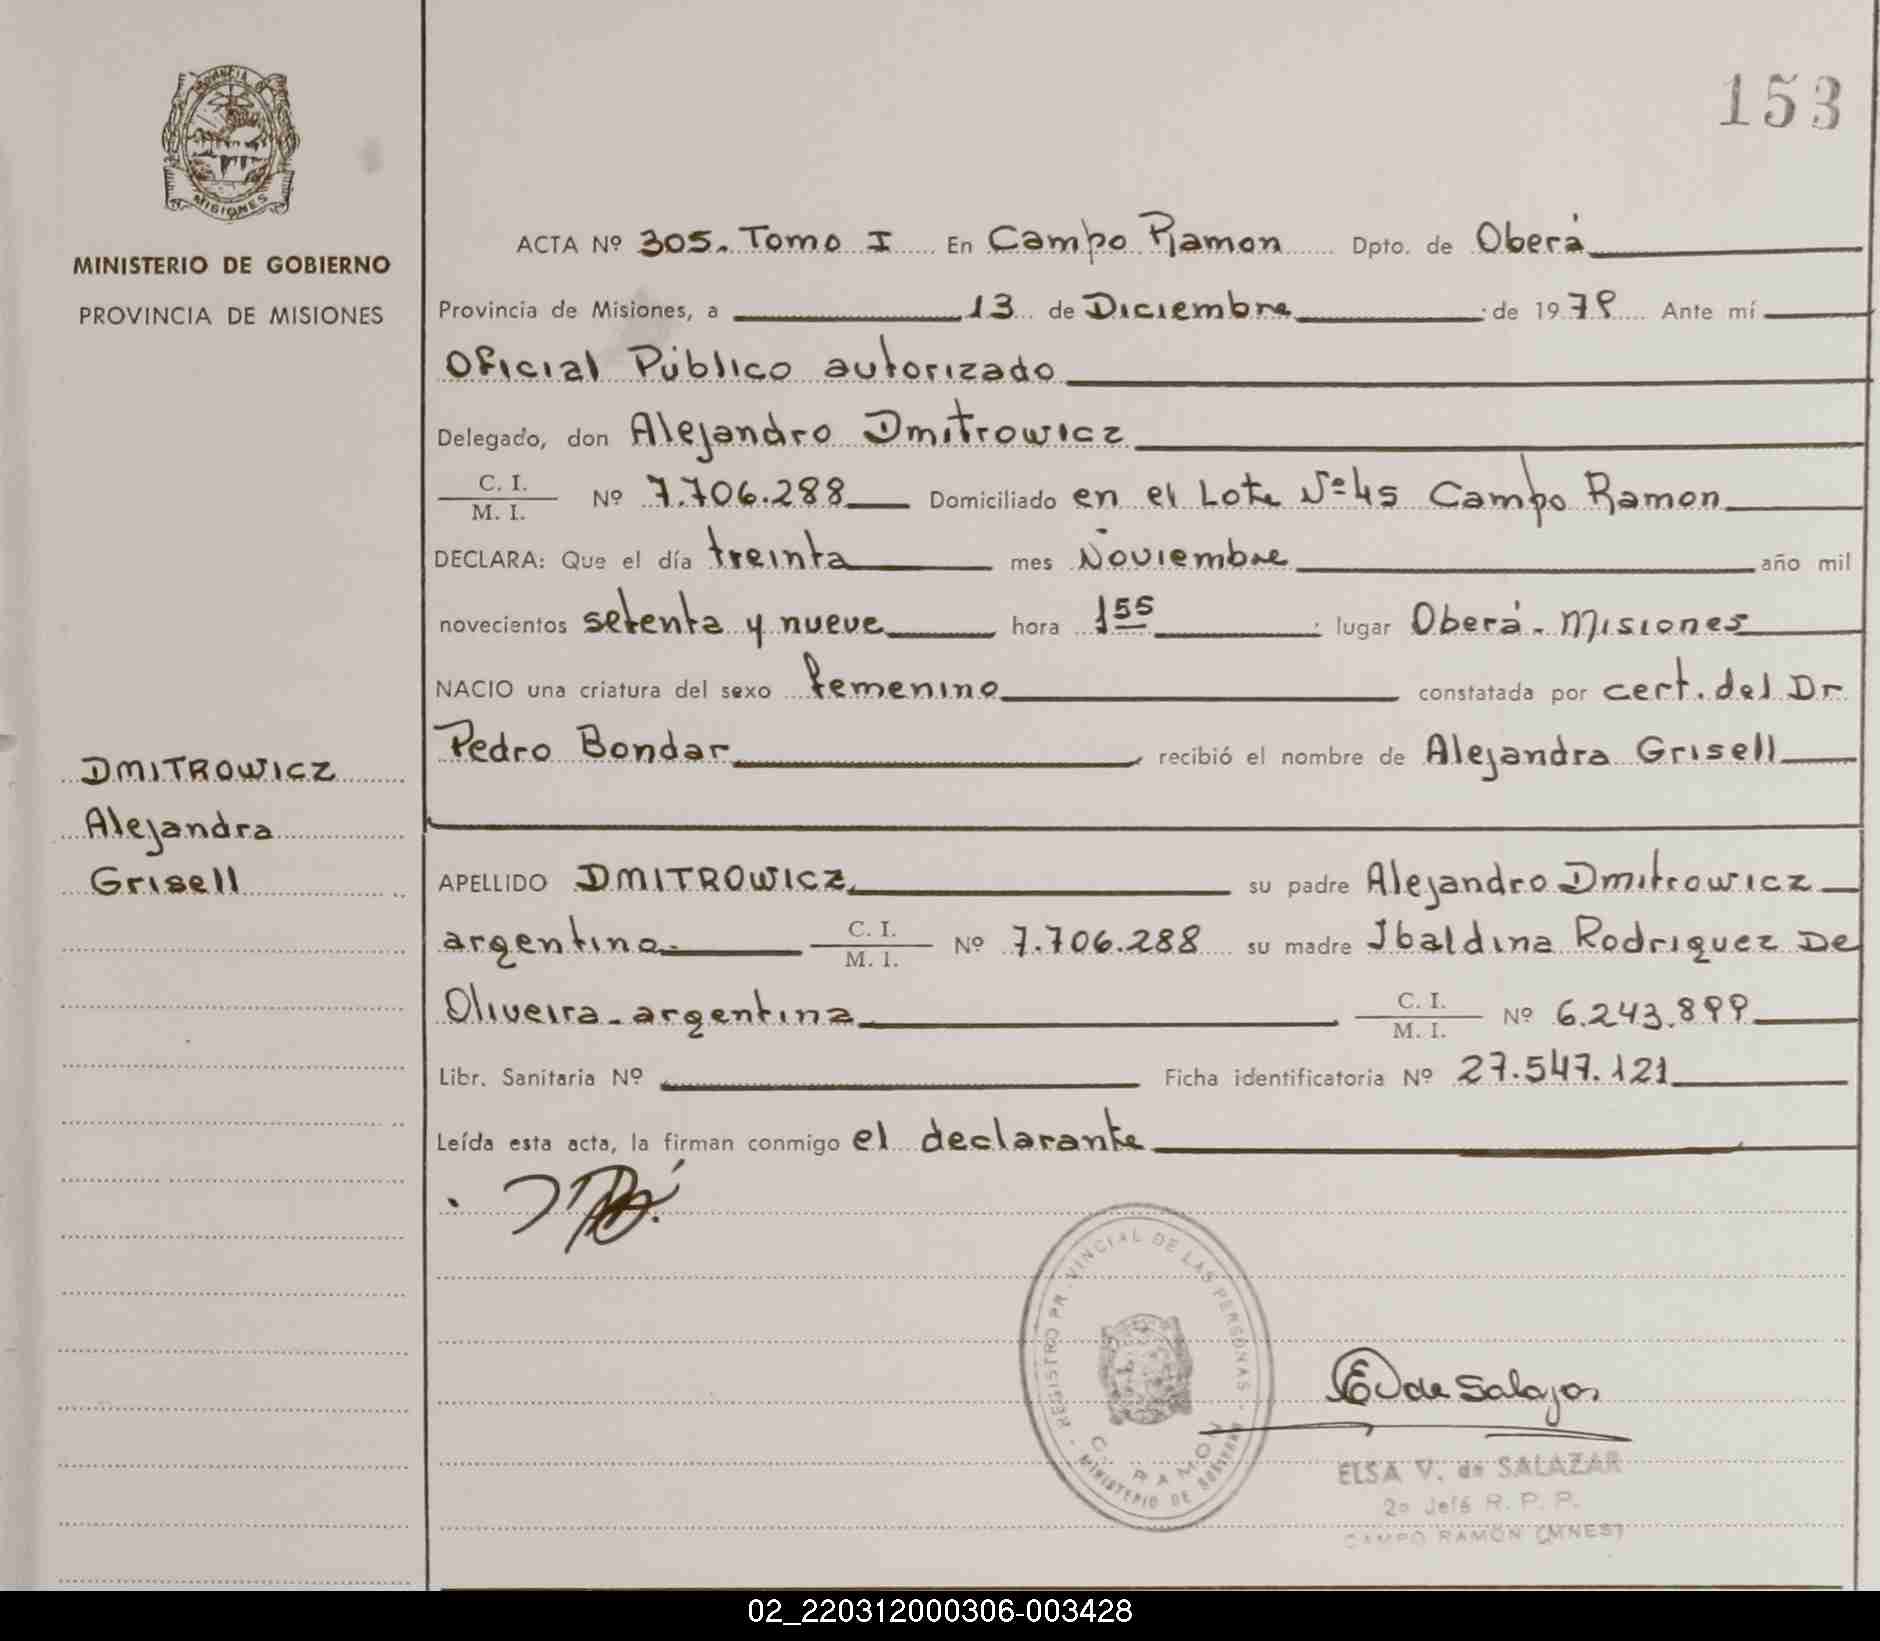 153
PROVINCIA D
MISIONES
MINISTERIO DE GOBIERNO
PROVINCIA DE MISIONES
ACTA Nº 305. Tomo I En Campo Ramon Dpto. de Oberá
Provincia de Misiones, a 13 de Diciembre de 1979 Ante mí
Oficial Público autorizado
Delegado, don Alejandro Dmitrowicz
C. I.
M. I. Nº 7.706.288 Domiciliado en el Lote Nº 45 Campo Ramon
DECLARA: Que el día treinta mes Noviembre año mil
novecientos setenta y nueve hora 1 55 lugar Oberá - Misiones
NACIO una criatura del sexo femenino constatada por cert. del Dr
Pedro Bondar recibió el nombre de Alejandra Grisell
DMITROWICZ
Alejandra
Grisell
APELLIDO DMITROWICZ su padre Alejandro Dmitrowicz
argentino. C. I.
M. I. Nº 7.706.288 su madre Ibaldina Rodriguez De
Oliveira - argentina C. I.
M. I. Nº 6.243.899
Libr. Sanitaria Nº Ficha identificatoria Nº 27.547.121
Leída esta acta, la firman conmigo el declarante
REGISTRO PR VINCIAL DE LAS PERSONAS - MINISTERIO DE GOBIERNO -
C. RAMON
E V de Salazar
ELSA V. de SALAZAR
2º Jefe R. P. P.
CAMPO RAMÓN (MNES)
02_220312000306-003428